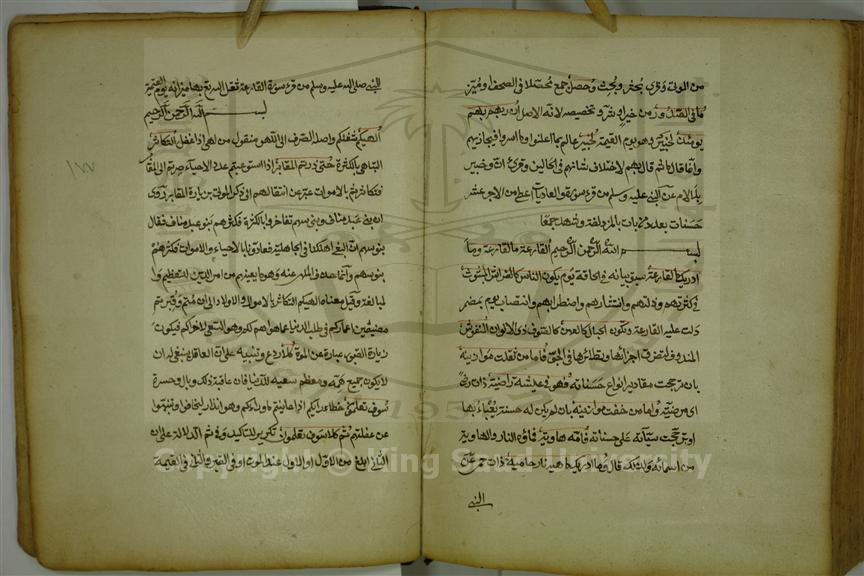 من الموتى وقرئ بحثر وبحث وحصل جمع محصلا في الصحف او ميّز
ما في الصدور من خير او شر وتخصيصه لانه الاصل ان ربهم بهم
يومئذ لخبير وهو يوم القيمة لخبير عالم بما اعلنوا وما اسروا فيجازيهم
وانما قال ما ثم قال بهم لاختلاف شانهم في الحالين وقرئ ان وخبير
بلا لام عن النبي عليه وسلم من قرء سورة والعاديات اعطي من الاجر عشر
حسنات بعدد من بات بالمزدلفة وشهد جمعا
بسم الله الرحمن الرحيم القارعة ما القارعة وما
ادريك ما القارعة سبق بيانه في الحاقة يوم يكون الناس كالفراش المبثوث
في كثرتهم وذلتهم وانتشارهم واضطرابهم وانتصاب يوم بمضمر
دلت عليه القارعة وتكون الجبال كالعهن كالصوف ذي الالوان المنفوش
المندوف لتفرق اجزائها وتطايرها في الجو فاما من ثقلت موازينه
بان ترجحت مقادير انواع حسناته فهو في عيشة راضية ذات رضى
اي مرضية واما من خفت موازينه بان لم يكن له حسنة يعبأ بها
او ترجحت سيآته على حسناته فامه هاوية فماواه النار والهاوية
من اسمائه ولذلك قال وما ادريك ما هيه نار حامية ذات حمى عن
النبي
النبي صلى الله عليه وسلم من قرء سورة القارعة ثقل الله تعالى بها ميزانه يوم القيمة
بسم الله الرحمن الرحيم
الهيكم شغلكم واصله الصرف الى اللهو منقول من لهى اذا غفل التكاثر
التباهي بالكثرة حتى زرتم المقابر اذا استوعبتم عدد الاحياء صرتم الى المقابر
فتكاثرتم بالاموات عبر عن انتقالهم الى ذكر الموتى بزيارة المقابر روى
ان بني عبد مناف وبني سهم تفاخروا بالكثرة فكثرهم بنو عبد مناف فقال
بنو سهم ان البغي اهلكنا في الجاهلية فعادونا بالاحياء والاموات فكثرهم
بنو سهم وانما حذف الملهى عنه وهو ما يعنيهم من امر الدين للتعظيم وا
لمبالغة وقيل معناه الهيكم التكاثر بالاموال والاولاد الى ان متم وقبرتم
مضيعين اعماركم في طلب الدنيا عما هو اهم لكم وهو السعي لاخراكم فيكون
زيارة القبور عبارة عن الموت كلا ردع وتنبيه على ان العاقل ينبغي له ان
لا يكون جميع همه ومعظم سعيه للدنيا فان عاقبة ذلك وبال وحسرة
سوف تعلمون خطاء رايكم اذا عاينتم ما ورائكم وهو انذار ليخافوا وينتبهوا
عن غفلتهم ثم كلا سوف تعلمون تكرير للتاكيد وفي ثم الدلالة على ان
الثاني ابلغ من الاول او الاول عند الموت او في القبر والثاني في القيمة
Copyright © King Saud University